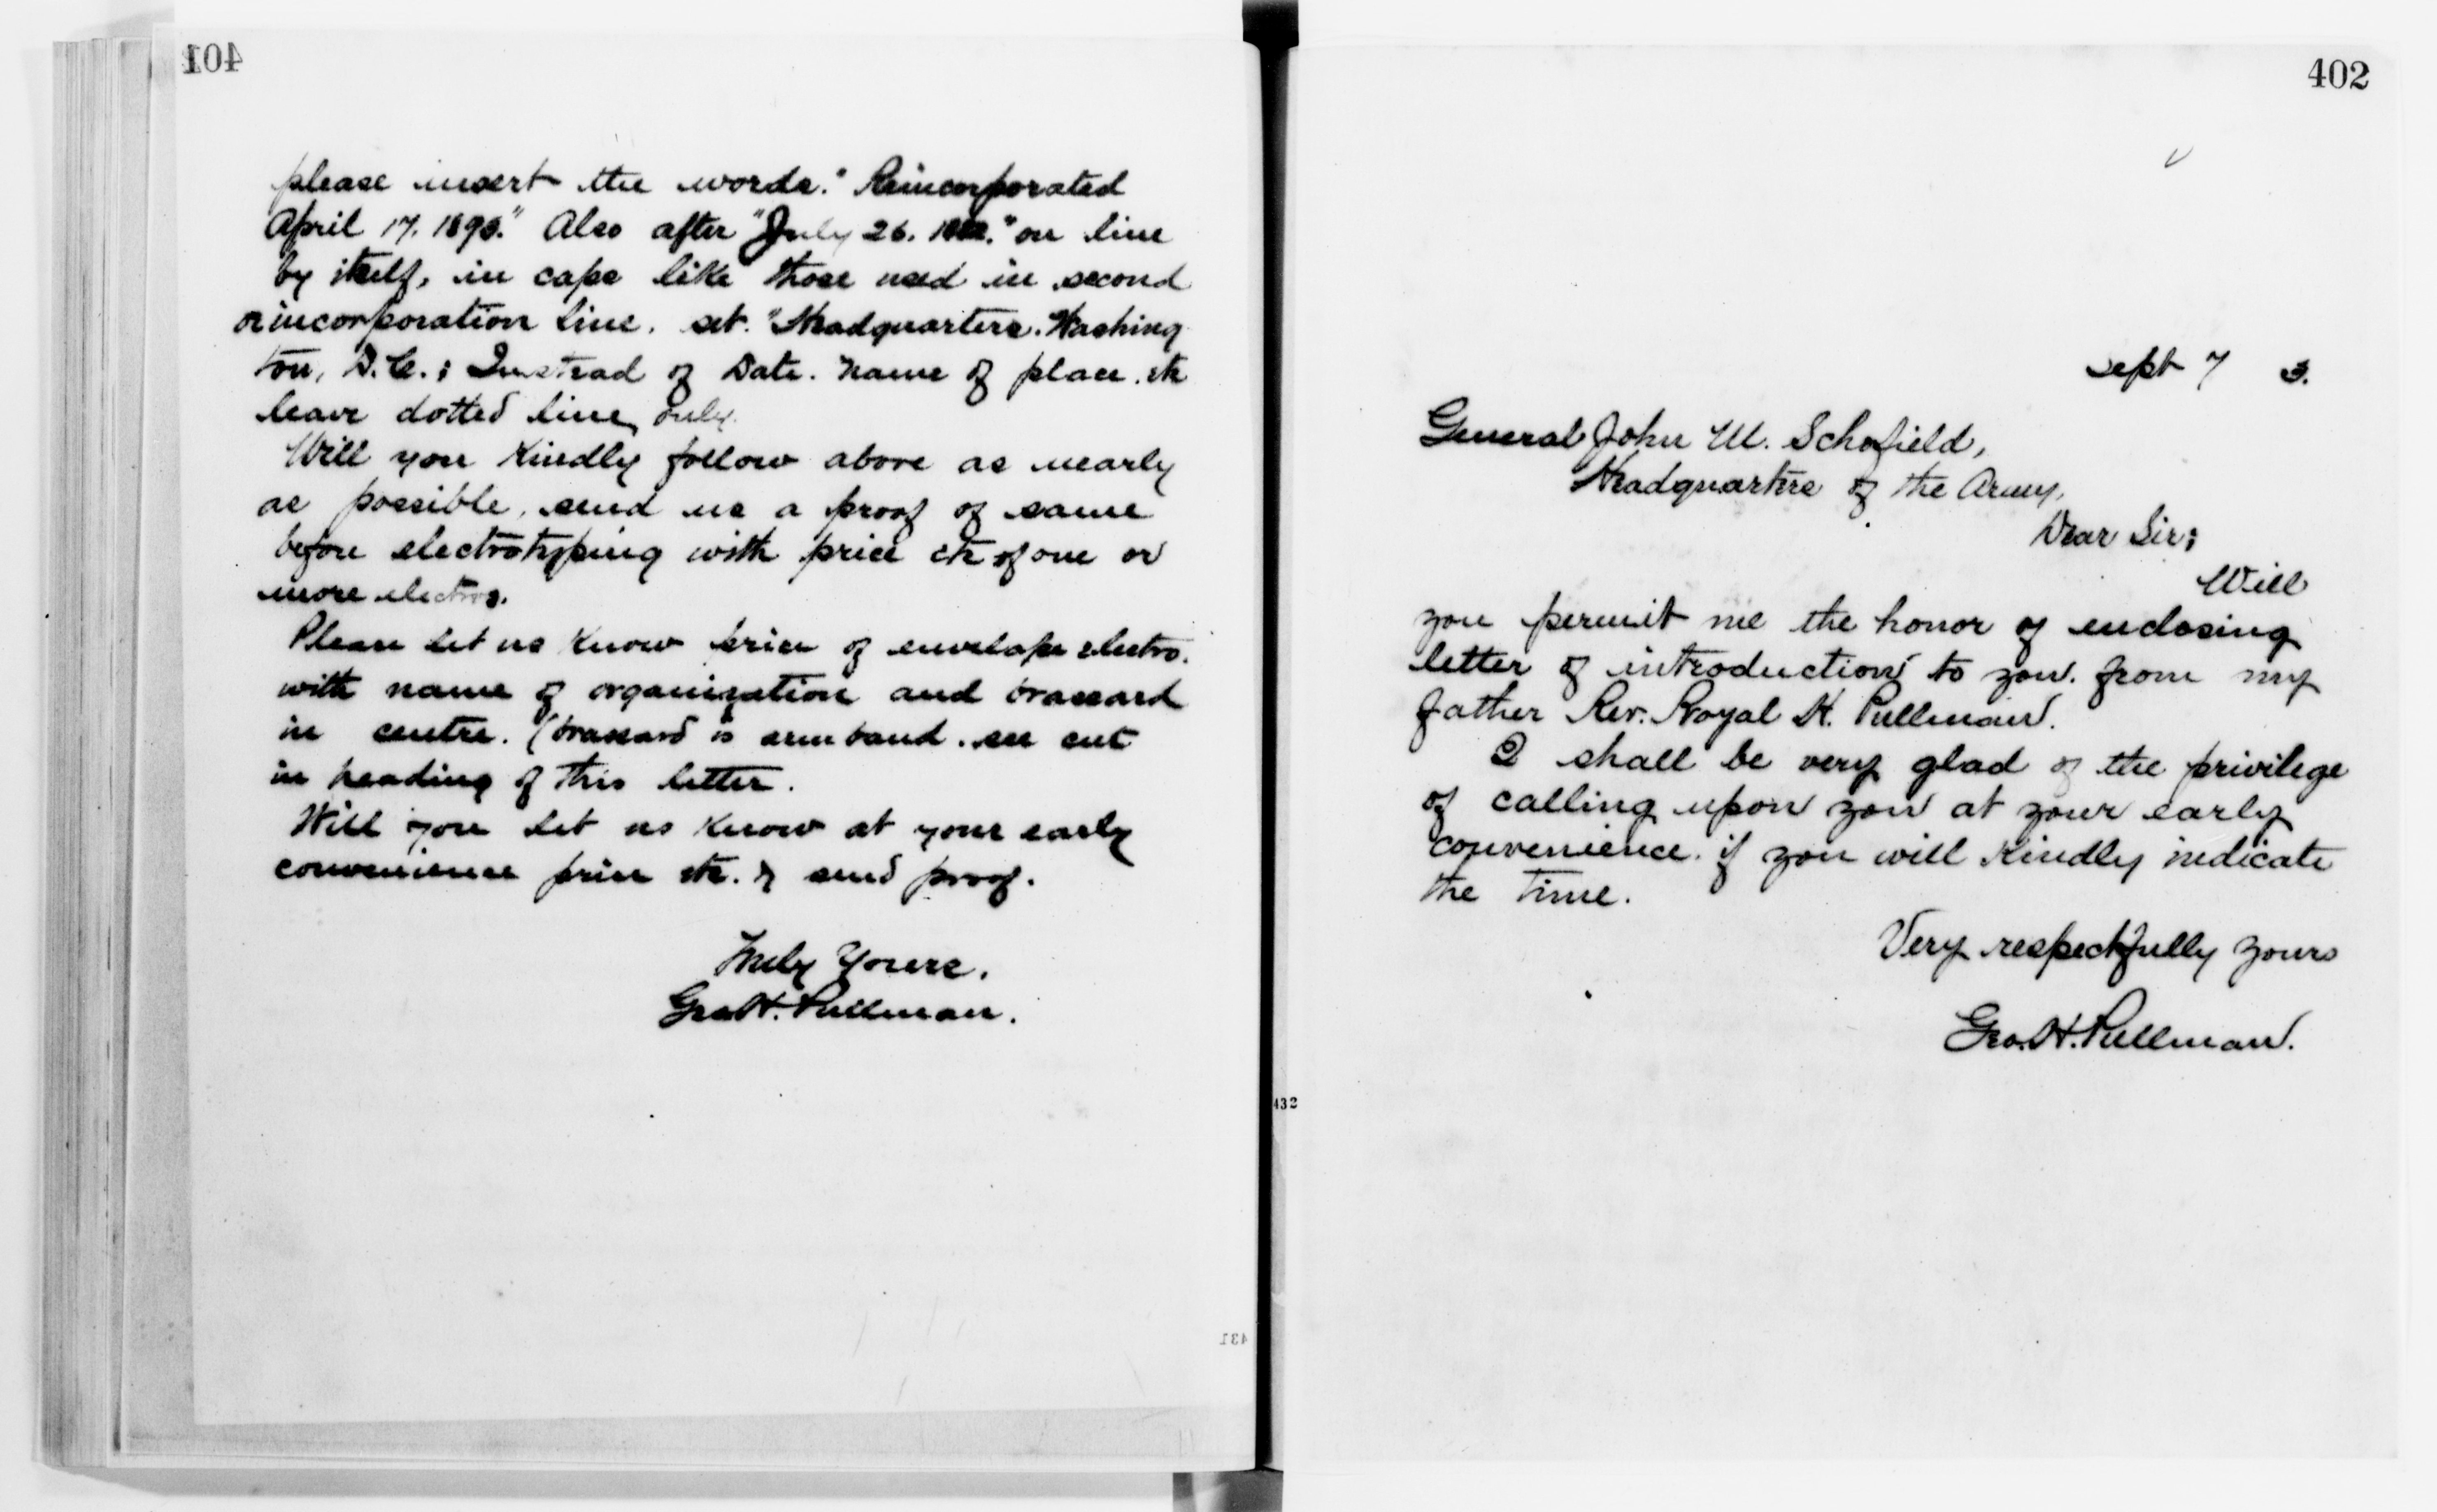 401
please insert the words. "Reincorporated
April 17. 1893." Also after "July 26. 1882." on line
by itself, in caps like those used in second
or incorporation line. set. "Headquarters. Washing
ton, D.C.; Instead of Date. name of place. etc
leave dotted line, only.
Will you kindly follow above as nearly
as possible, send us a proof of same
before electrotyping with price etc of one or
more electros.
Please let us know price of envelope electro.
with name of organization and brassard
in centre. (brassard is arm band. see cut
in heading of this letter.
Will you let us know at your early
convenience price etc. & send proof.
Truly Yours.
Geo H. Pullman.
431
402
Sept 7 3.
General John M. Schofield,
Headquarters of the Army,
Dear Sir;
Will
you permit me the honor of enclosing
letter of introduction to you. from my
father Rev. Royal H. Pullman.
I shall be very glad of the privilege
of calling upon you at your early
convenience. if you will kindly indicate
the time.
Very respectfully yours
Geo. H. Pullman.
432